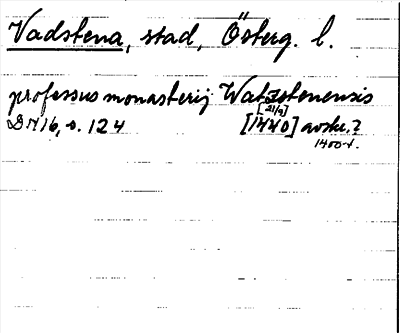 Vadstena, stad, Österg. l.
professus monasterij Watzstenensis
[21/9]
DM16, s. 124 [1440] avskr.?
1400-t.